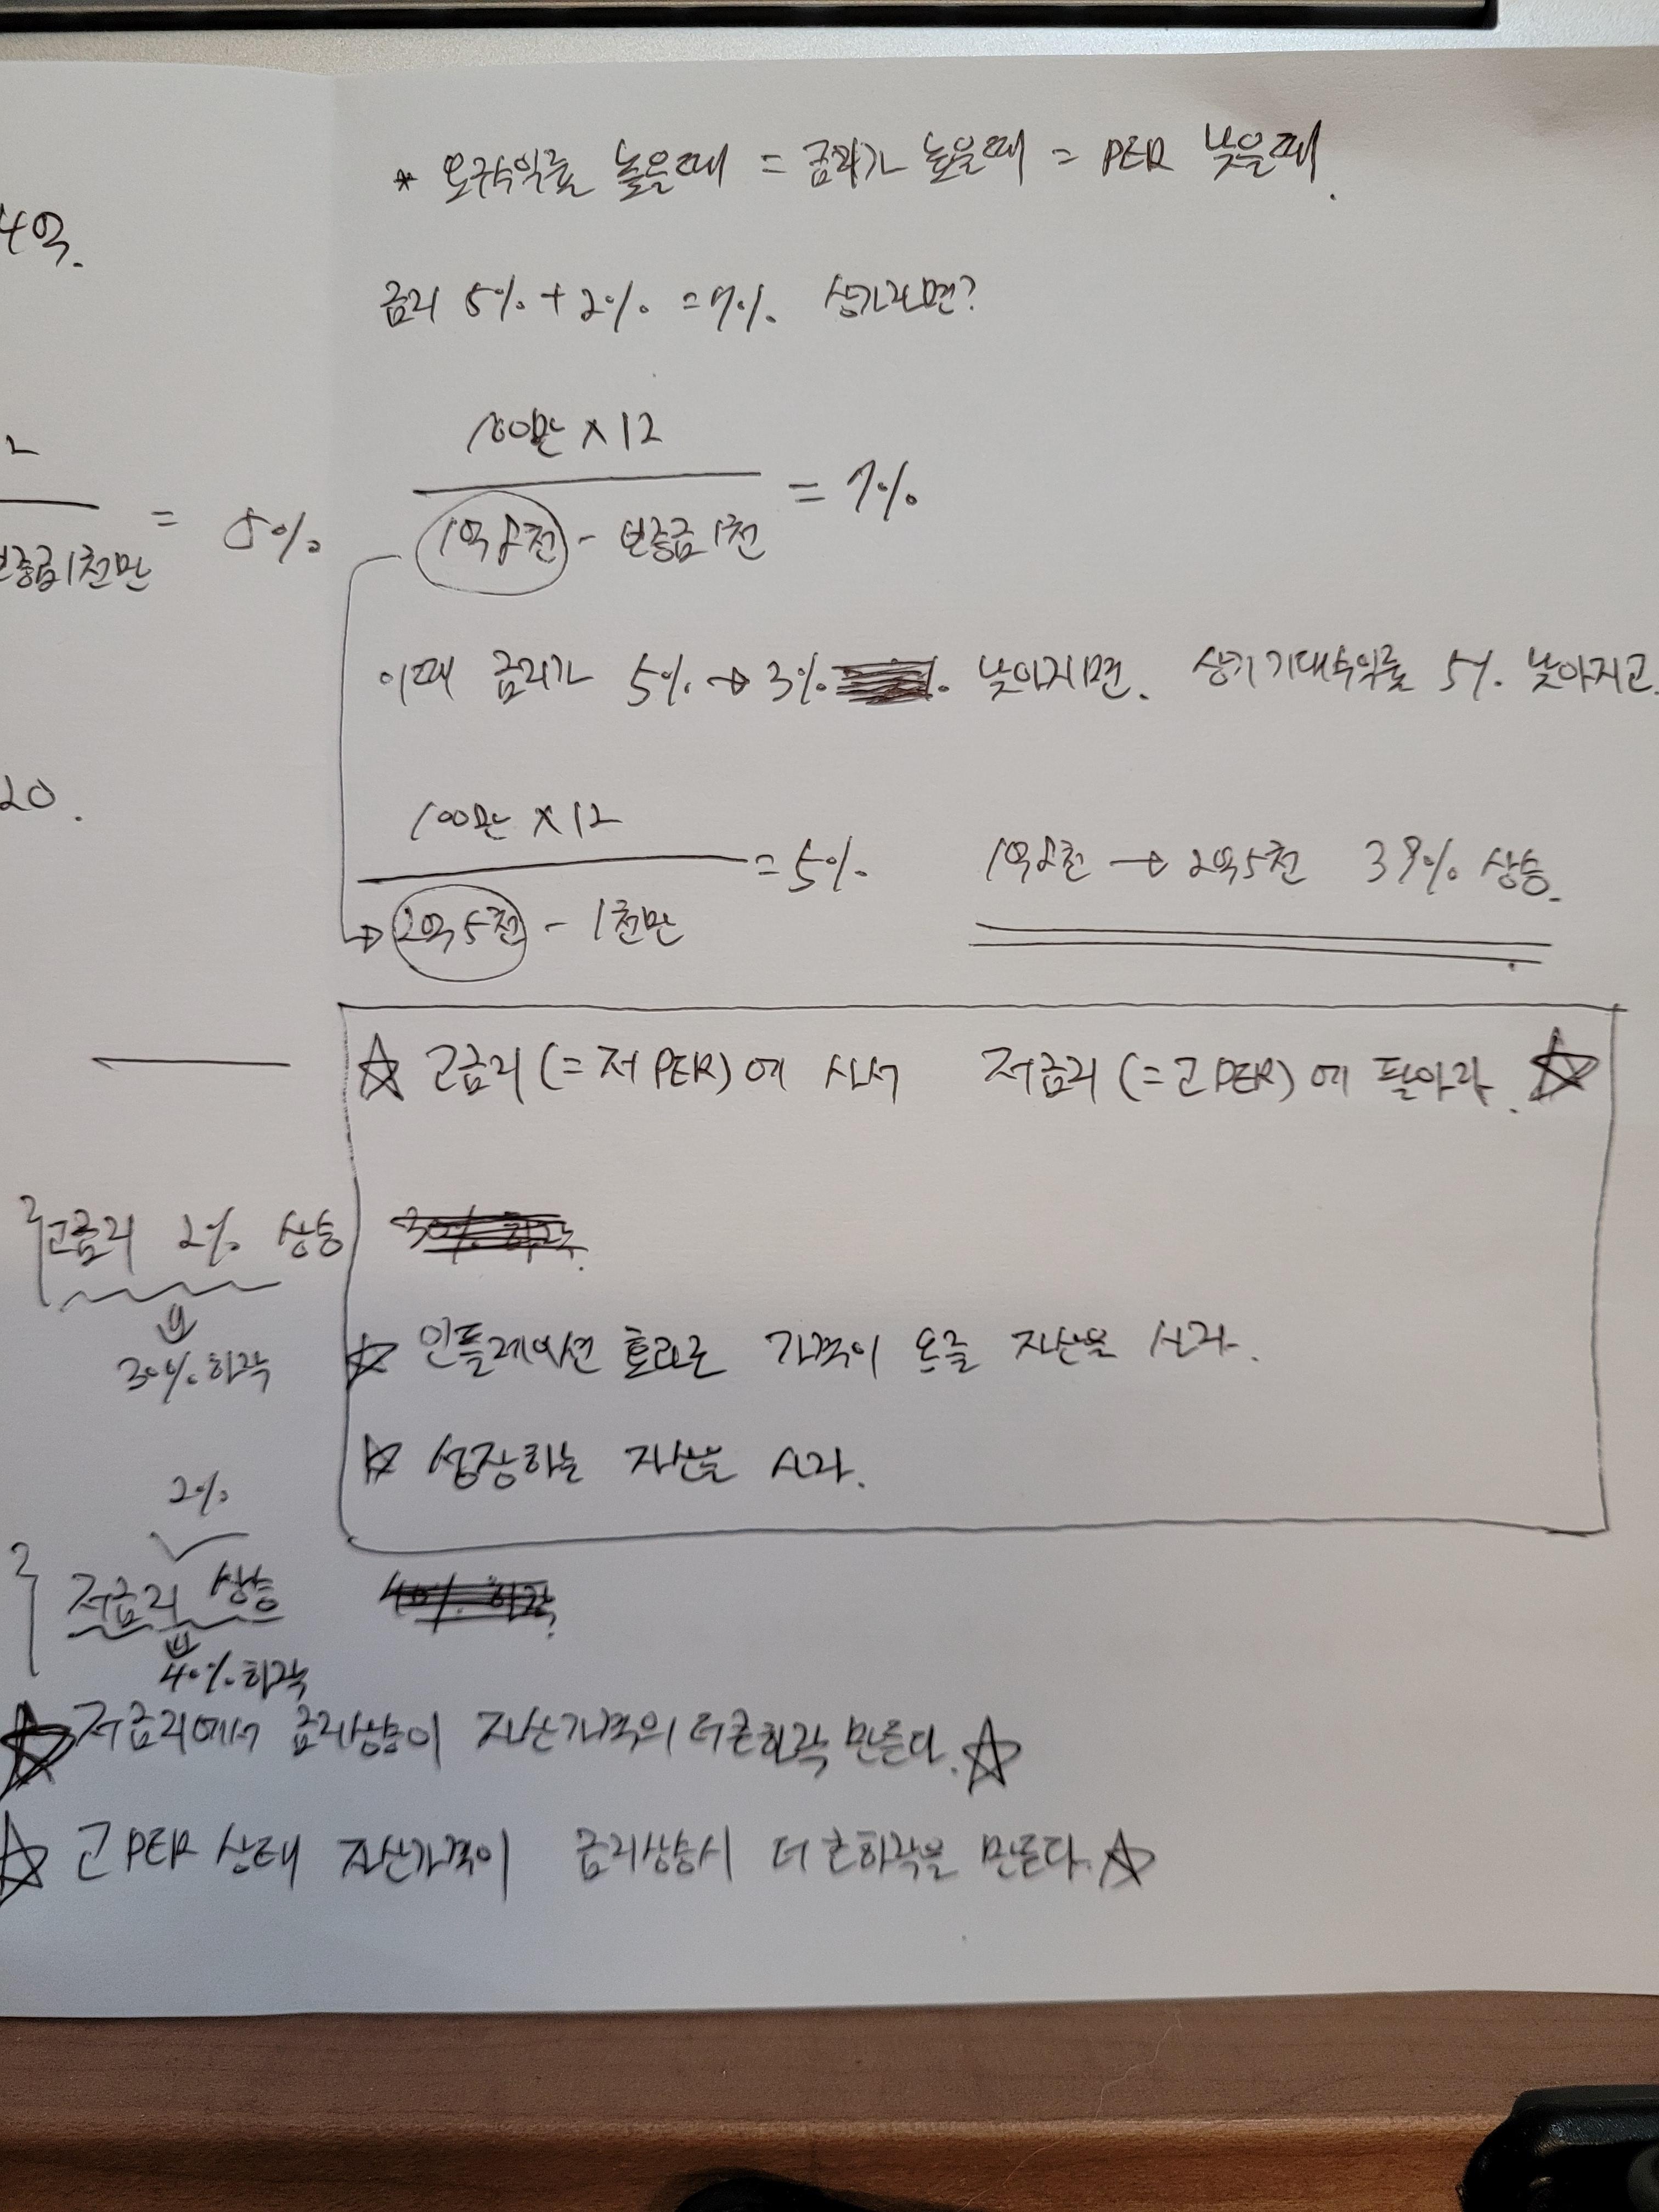 4억.
2
= 5%
보증금1천만
20.
* 요구수익률 높을때 = 금리가 높을때 = PER 낮을때.
금리 5% + 2% = 7% 상가라면?
100만 × 12
1억8천 - 보증금1천
= 7%
이때 금리가 5% → 3% 낮아지면. 상가 기대수익률 5% 낮아지고.
100만 × 12
2억5천 - 1천만
= 5%
1억8천 → 2억5천 39% 상승.
☆ 고금리(=저PER)에 사서 저금리(=고PER)에 팔아라. ☆
고금리 2% 상승
30% 하락
☆ 인플레이션 효과로 가격이 오를 자산을 사라.
☆ 성장하는 자산을 사라.
2%
저금리 상승
40% 하락
☆ 저금리에서 금리상승이 자산가격의 더 큰 하락 만든다. ☆
☆ 고PER 상태 자산가격이 금리상승시 더 큰 하락을 만든다. ☆